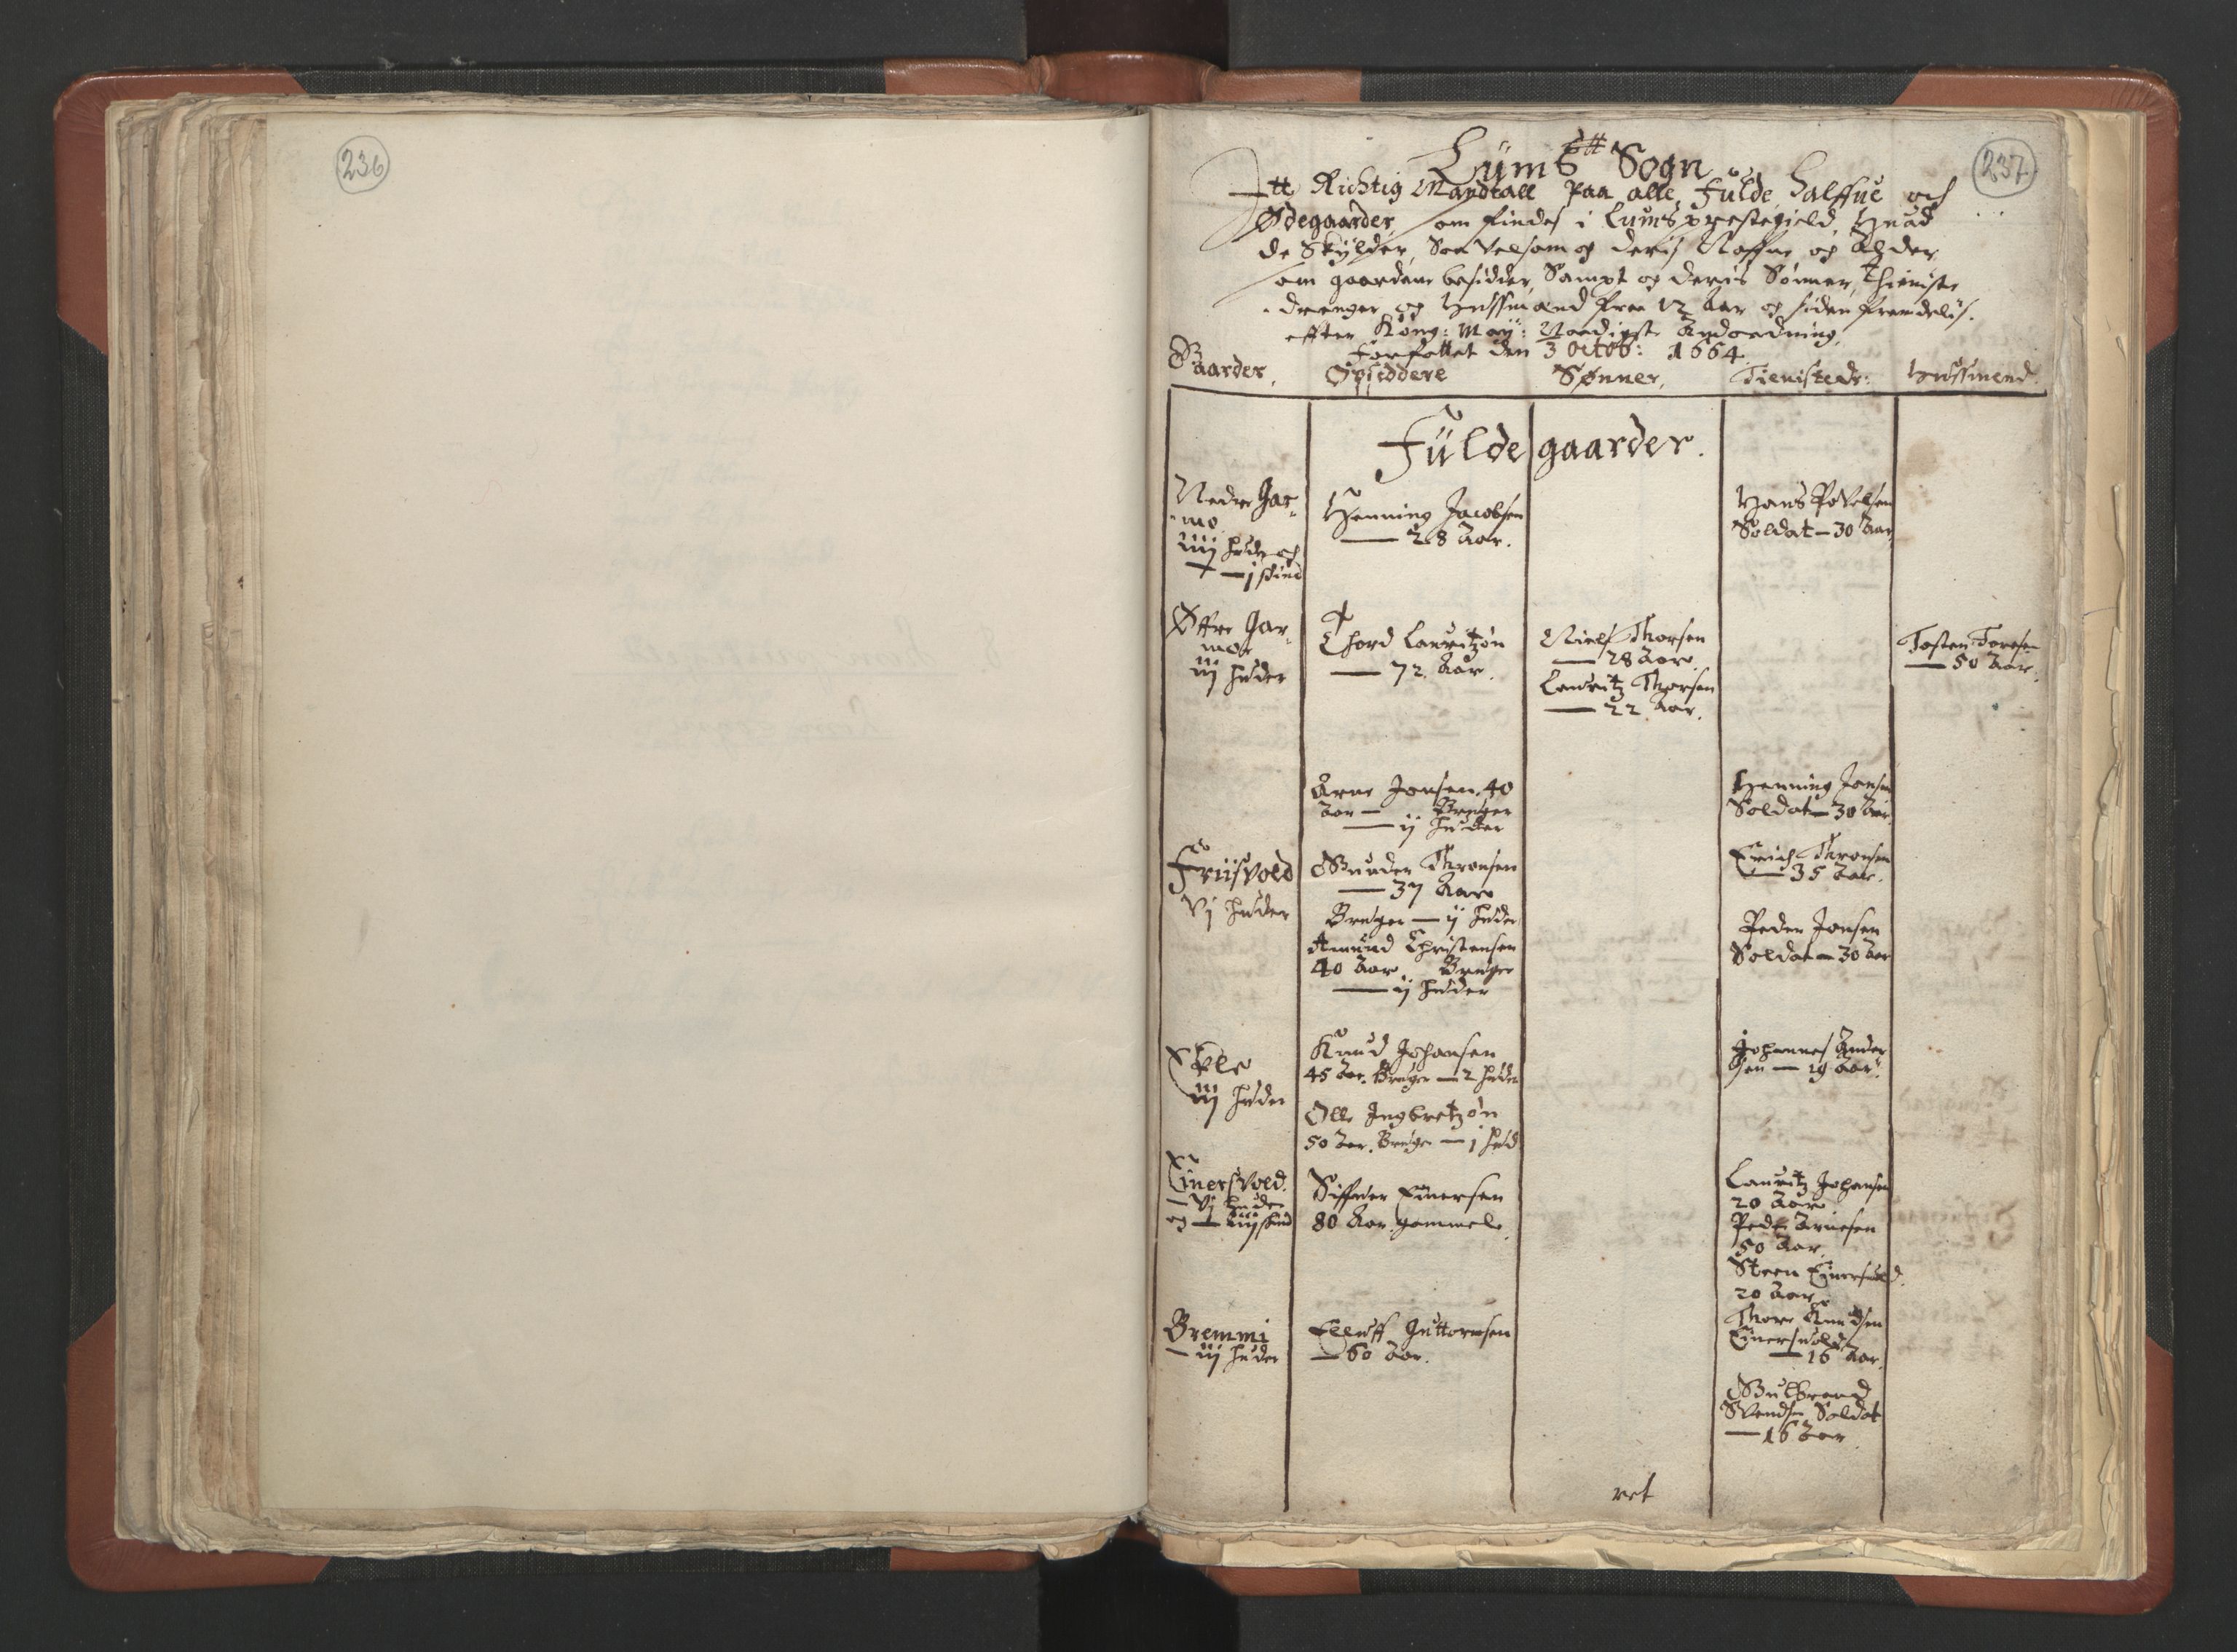 236
237
Lums Sogn
Itt Richtig Mandtall paa alle Fulde, Halffue och
Ødegaarder, som findes i Lums prestegield, huad
de Skylder, Saa velsom og deris Naffne og Alder,
som gaardene besidder, Sampt og deris Sønner, Thieniste
drenger og Hussmænd fra 12 Aar og siden fremdelis.
effter Kong: May: Naadigste Andordning,
Forfattet den 3 Octob: 1664.
Gaarder, Opsiddere Sønner, Tienistedr: Hussmend.
Fulde gaarder.
Nedre Gar-
mo
iiij huder og
j skind
Henning Jacobsen
— 28 Aar.
Hans Povelsen
Soldat — 30 Aar
Øffre Gar-
moe
iij huder
Thord Lauritzøn
— 72 Aar.
Niels Thorsen
— 28 Aar.
Lauritz Thorsen
— 22 Aar.
Tosten Toresen
— 50 Aar.
Arne Jonsen 40
Aar — Bruger
— ij huder
Henning Jonsen
Soldat — 30 Aar
Friisvold
vj huder
Gunder Thronsen
— 37 Aar
Bruger — ij huder
Amund Christensen
40 Aar. Bruger
— ij huder
Erich Thronsen
— 35 Aar.
Peder Jonsen
Soldat — 30 Aar
iij huder
Knud Johansen
45 Aar. Bruger — 2 huder
Olle Ingbretzøn
50 Aar. Bruger — j hud
Johannes Ander
sen — 19 Aar.
Einersvold.
— vj huder
og — iiij skind
Siffuer Einersen
80 Aar gammel.
Lauritz Johansen
20 Aar
Peder Arnesen
50 Aar.
Steen Einersvold.
20 Aar
Thore Knudsen
Einersvold
— 16 Aar.
Bremmi
— iij huder
Elluff Guttormsen
— 60 Aar.
Gulbrand
Svendsen Soldat
— 16 Aar